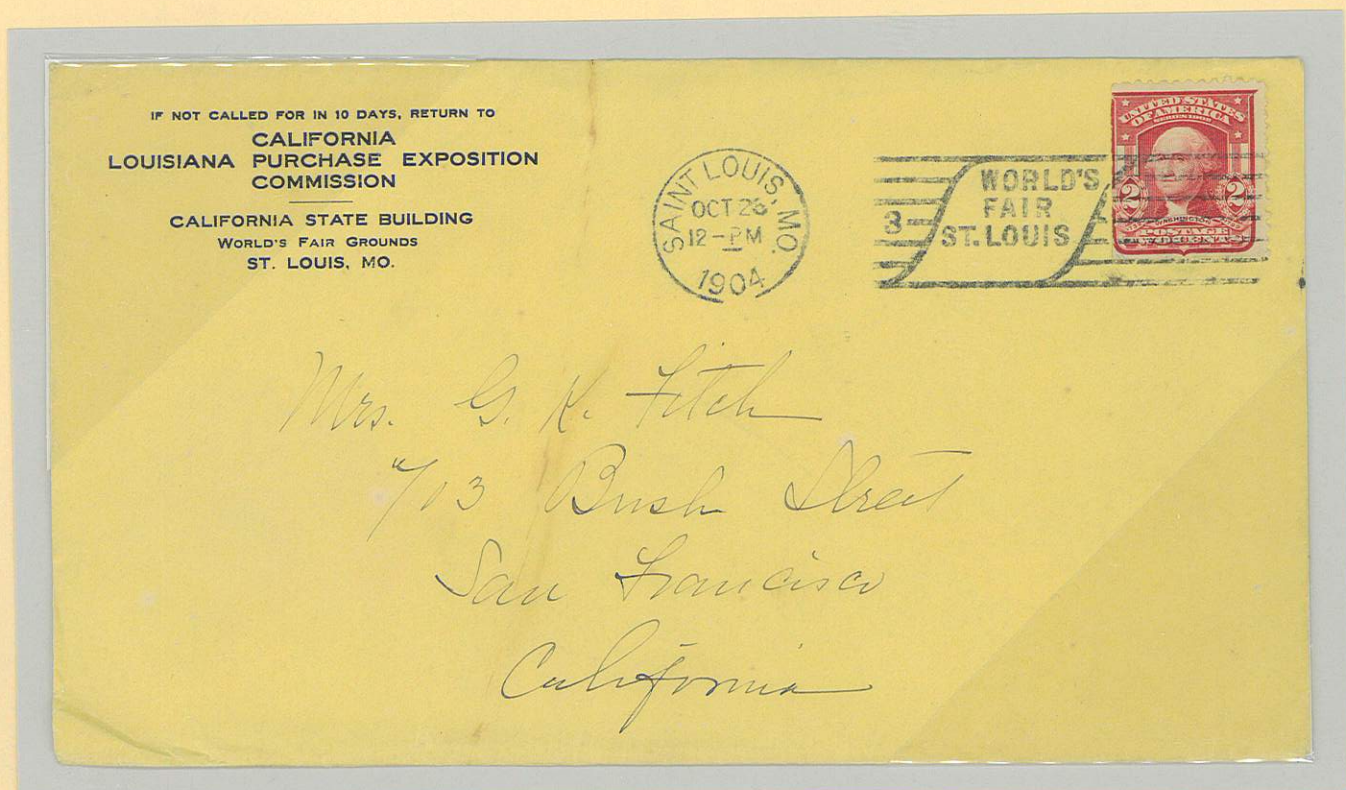 IF NOT CALLED FOR IN 10 DAYS, RETURN TO
CALIFORNIA
LOUISIANA PURCHASE EXPOSITION
COMMISSION
CALIFORNIA STATE BUILDING
WORLD'S FAIR GROUNDS
ST. LOUIS, MO.
SAINT LOUIS, MO.
OCT 26
12-PM
1904
3
WORLD'S
FAIR
ST. LOUIS
UNITED STATES
OF AMERICA
SERIES 1902
2 2
WASHINGTON
POSTAGE
TWO CENTS
Mrs. G. K. Fitch
713 Bush Street
San Francisco
California